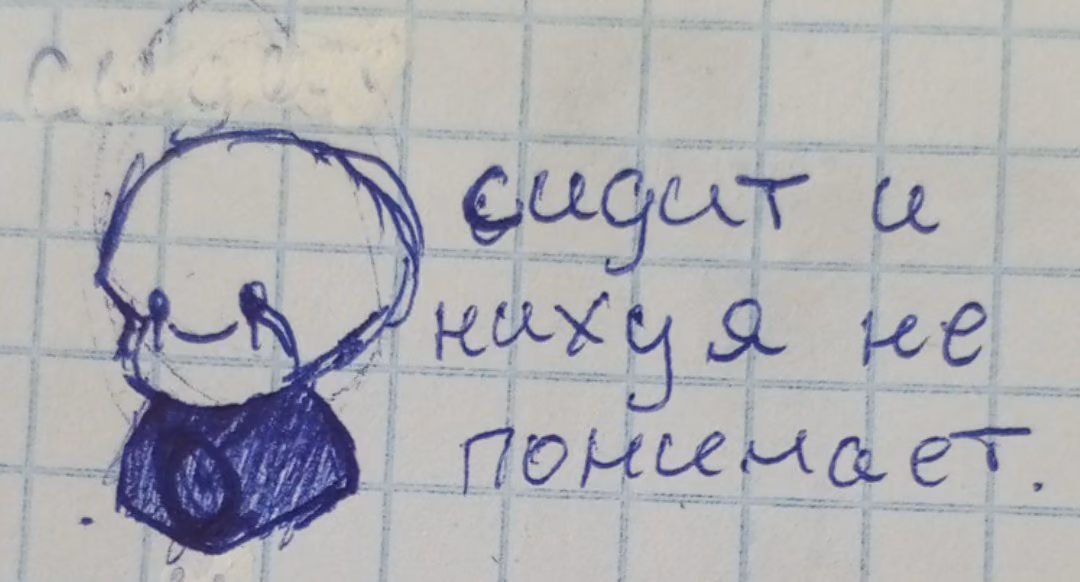 сидит и
нихуя не
понимает.